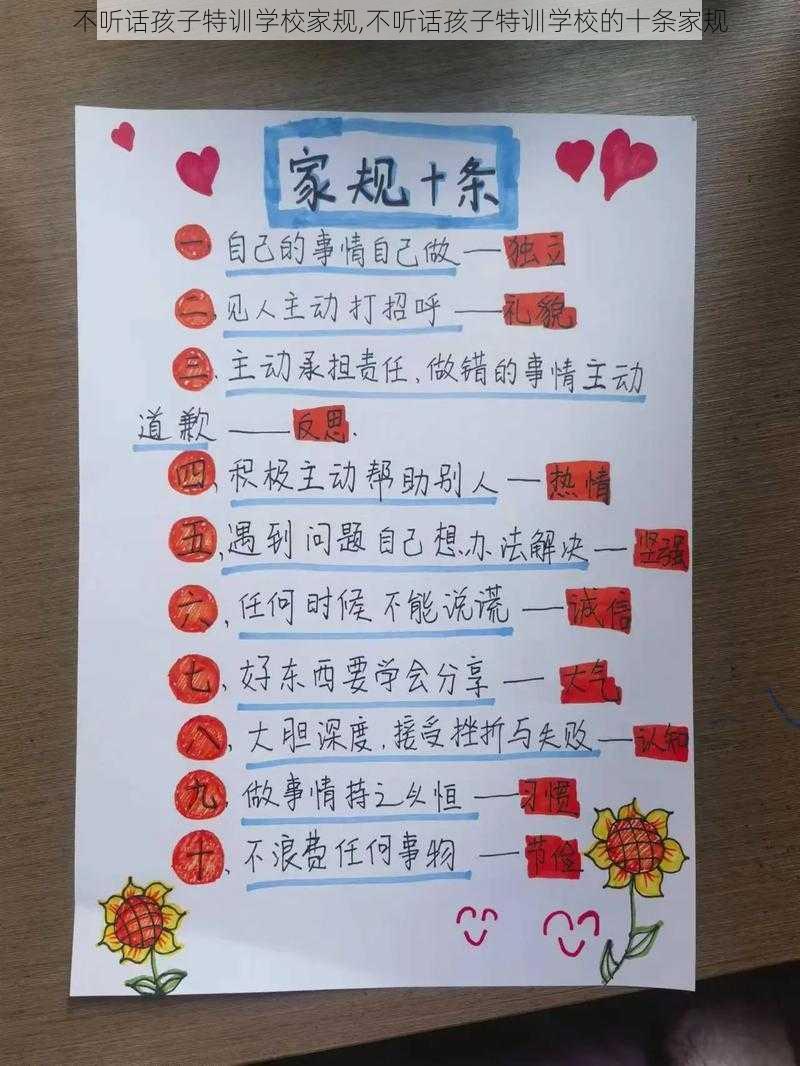 不听话孩子特训学校家规,不听话孩子特训学校的十条家规
家规十条
一、自己的事情自己做——独立
二、见人主动打招呼——礼貌
三、主动承担责任、做错的事情主动
道歉——反思.
四、积极主动帮助别人——热情
五、遇到问题自己想办法解决——坚强
六、任何时候不能说谎——诚信
七、好东西要学会分享——大气
八、大胆深度,接受挫折与失败——认知
九、做事情持之以恒——习惯
十、不浪费任何事物——节俭